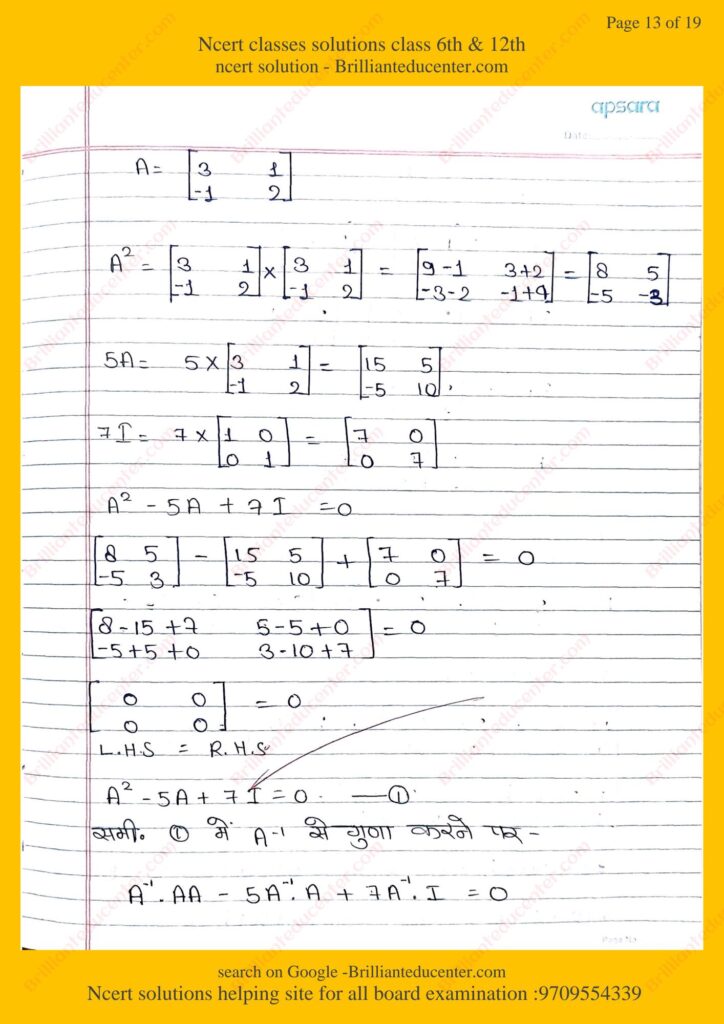 Page 13 of 19
Ncert classes solutions class 6th & 12th
ncert solution - Brillianteducenter.com
apsara
Date:
A= [3 1
-1 2]
A² = [3 1
-1 2] × [3 1
-1 2] = [9-1 3+2
-3-2 -1+4] = [8 5
-5 -3]
5A= 5 × [3 1
-1 2] = [15 5
-5 10],
7I= 7 × [1 0
0 1] = [7 0
0 7]
A² - 5A + 7I =0
[8 5
-5 3] - [15 5
-5 10] + [7 0
0 7] = 0
[8-15+7 5-5+0
-5+5+0 3-10+7] = 0
[0 0
0 0] = 0
L.H.S = R.H.S
A² - 5A + 7I = 0. —①
समी. ① में A⁻¹ से गुणा करने पर -
A⁻¹.AA - 5A⁻¹.A + 7A⁻¹.I = 0
Page No
search on Google -Brillianteducenter.com
Ncert solutions helping site for all board examination :9709554339
Brillianteducenter.com